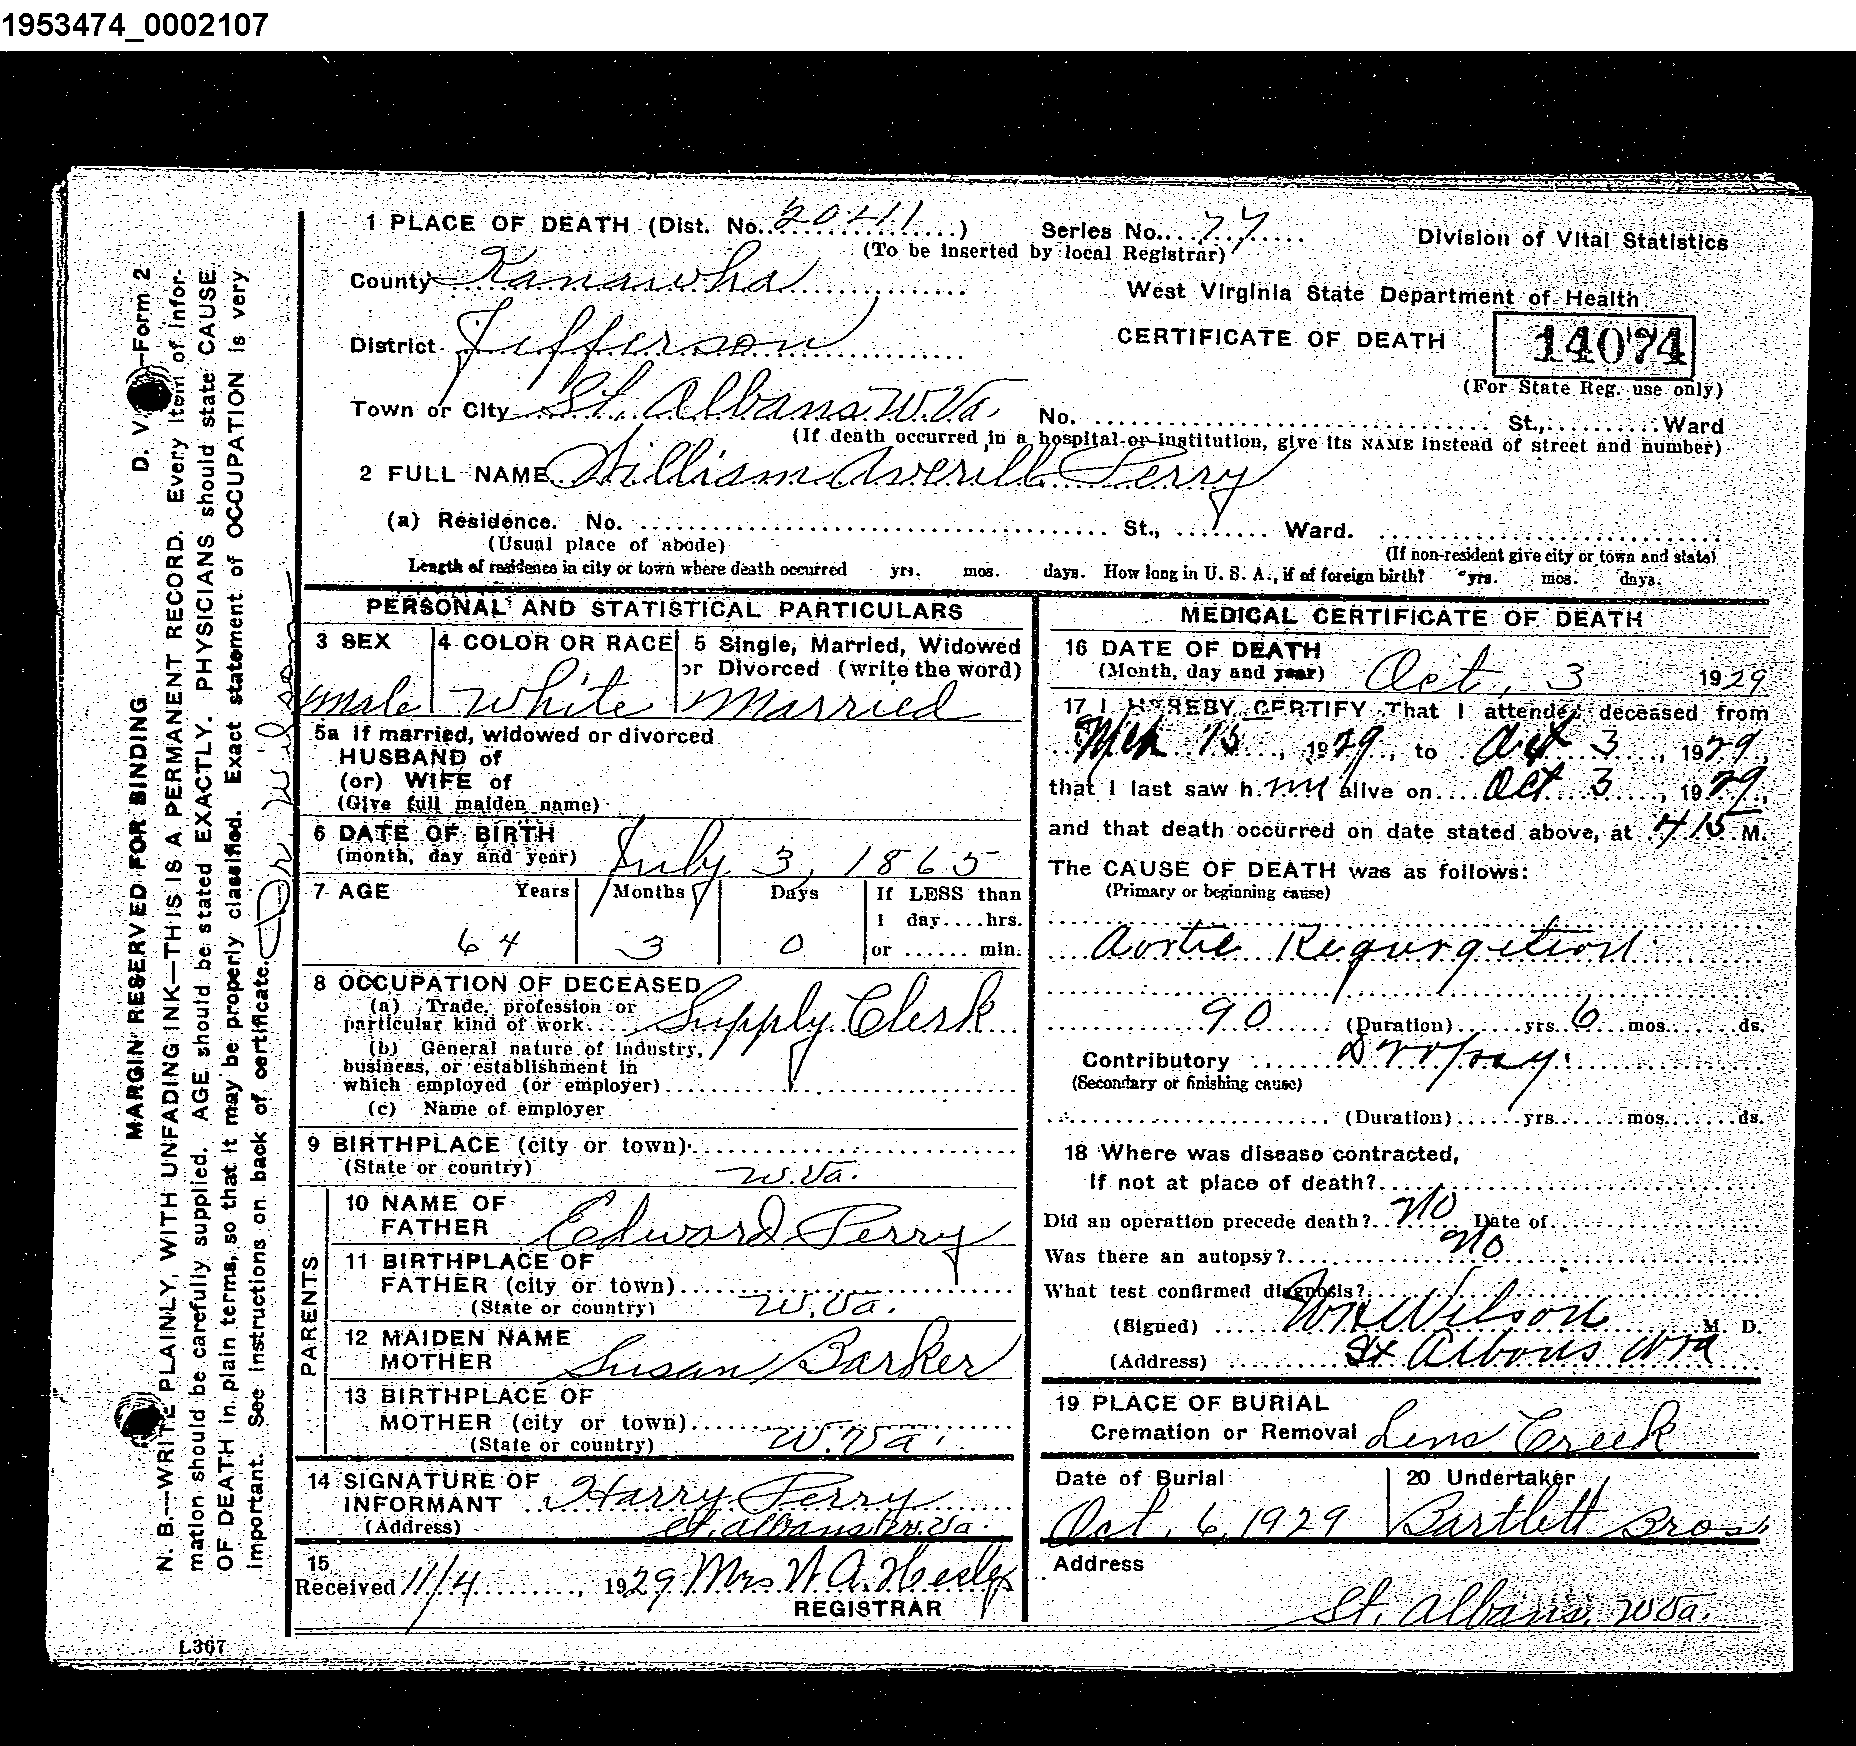 1953474_0002107
1 PLACE OF DEATH (Dist. No. 2041) Series No. 77 Division of Vital Statistics
(To be inserted by local Registrar)
County Kanawha West Virginia State Department of Health
District Jefferson CERTIFICATE OF DEATH 14074
(For State Reg. use only)
Town or City St. Albans W.Va. No. St., Ward
(If death occurred in a hospital or institution, give its NAME instead of street and number)
2 FULL NAME William Averill Perry
(a) Residence. No. St., Ward.
(Usual place of abode) (If non-resident give city or town and state)
Length of residence in city or town where death occurred yrs. mos. days. How long in U. S. A., if of foreign birth? yrs. mos. days.
PERSONAL AND STATISTICAL PARTICULARS
3 SEX 4 COLOR OR RACE 5 Single, Married, Widowed
or Divorced (write the word)
Male White Married
5a If married, widowed or divorced
HUSBAND of
(or) WIFE of
(Give full maiden name)
6 DATE OF BIRTH
(month, day and year) July 3, 1865
7 AGE Years Months Days If LESS than
1 day....hrs.
64 3 0 or ...... min.
8 OCCUPATION OF DECEASED
(a) Trade, profession or
particular kind of work Supply Clerk
(b) General nature of industry,
business, or establishment in
which employed (or employer)
(c) Name of employer
9 BIRTHPLACE (city or town)
(State or country) W.Va.
PARENTS
10 NAME OF
FATHER Edward Perry
11 BIRTHPLACE OF
FATHER (city or town)
(State or country) W.Va.
12 MAIDEN NAME
MOTHER Susan Barker
13 BIRTHPLACE OF
MOTHER (city or town)
(State or country) W.Va.
14 SIGNATURE OF
INFORMANT Harry Perry
(Address) St. Albans W.Va.
15
Received 11/4, 1929 Mrs W.A.
REGISTRAR
MEDICAL CERTIFICATE OF DEATH
16 DATE OF DEATH
(Month, day and year) Oct. 3 1929
17 I HEREBY CERTIFY That I attended deceased from
Mch 15, 1929, to Oct 3, 1929,
that I last saw h im alive on Oct 3, 1929,
and that death occurred on date stated above, at 415 M.
The CAUSE OF DEATH was as follows:
(Primary or beginning cause)
Aortic Regurgition
90 (Duration) yrs. 6 mos. ds.
Contributory Dropsy
(Secondary or finishing cause)
(Duration) yrs. mos. ds.
18 Where was disease contracted,
If not at place of death?
Did an operation precede death? No Date of
Was there an autopsy? No
What test confirmed diagnosis?
(Signed) Wilson M. D.
(Address) St Albans Wva
19 PLACE OF BURIAL
Cremation or Removal Lens Creek
Date of Burial 20 Undertaker
Oct. 6, 1929 Bartlett Bros
Address
St. Albans, W.Va.
D. V. S.—Form 2
MARGIN RESERVED FOR BINDING
N. B.—WRITE PLAINLY, WITH UNFADING INK—THIS IS A PERMANENT RECORD. Every item of infor-
mation should be carefully supplied. AGE should be stated EXACTLY. PHYSICIANS should state CAUSE
OF DEATH in plain terms, so that it may be properly classified. Exact statement of OCCUPATION is very
important. See instructions on back of certificate.
Dr Wilson
L367